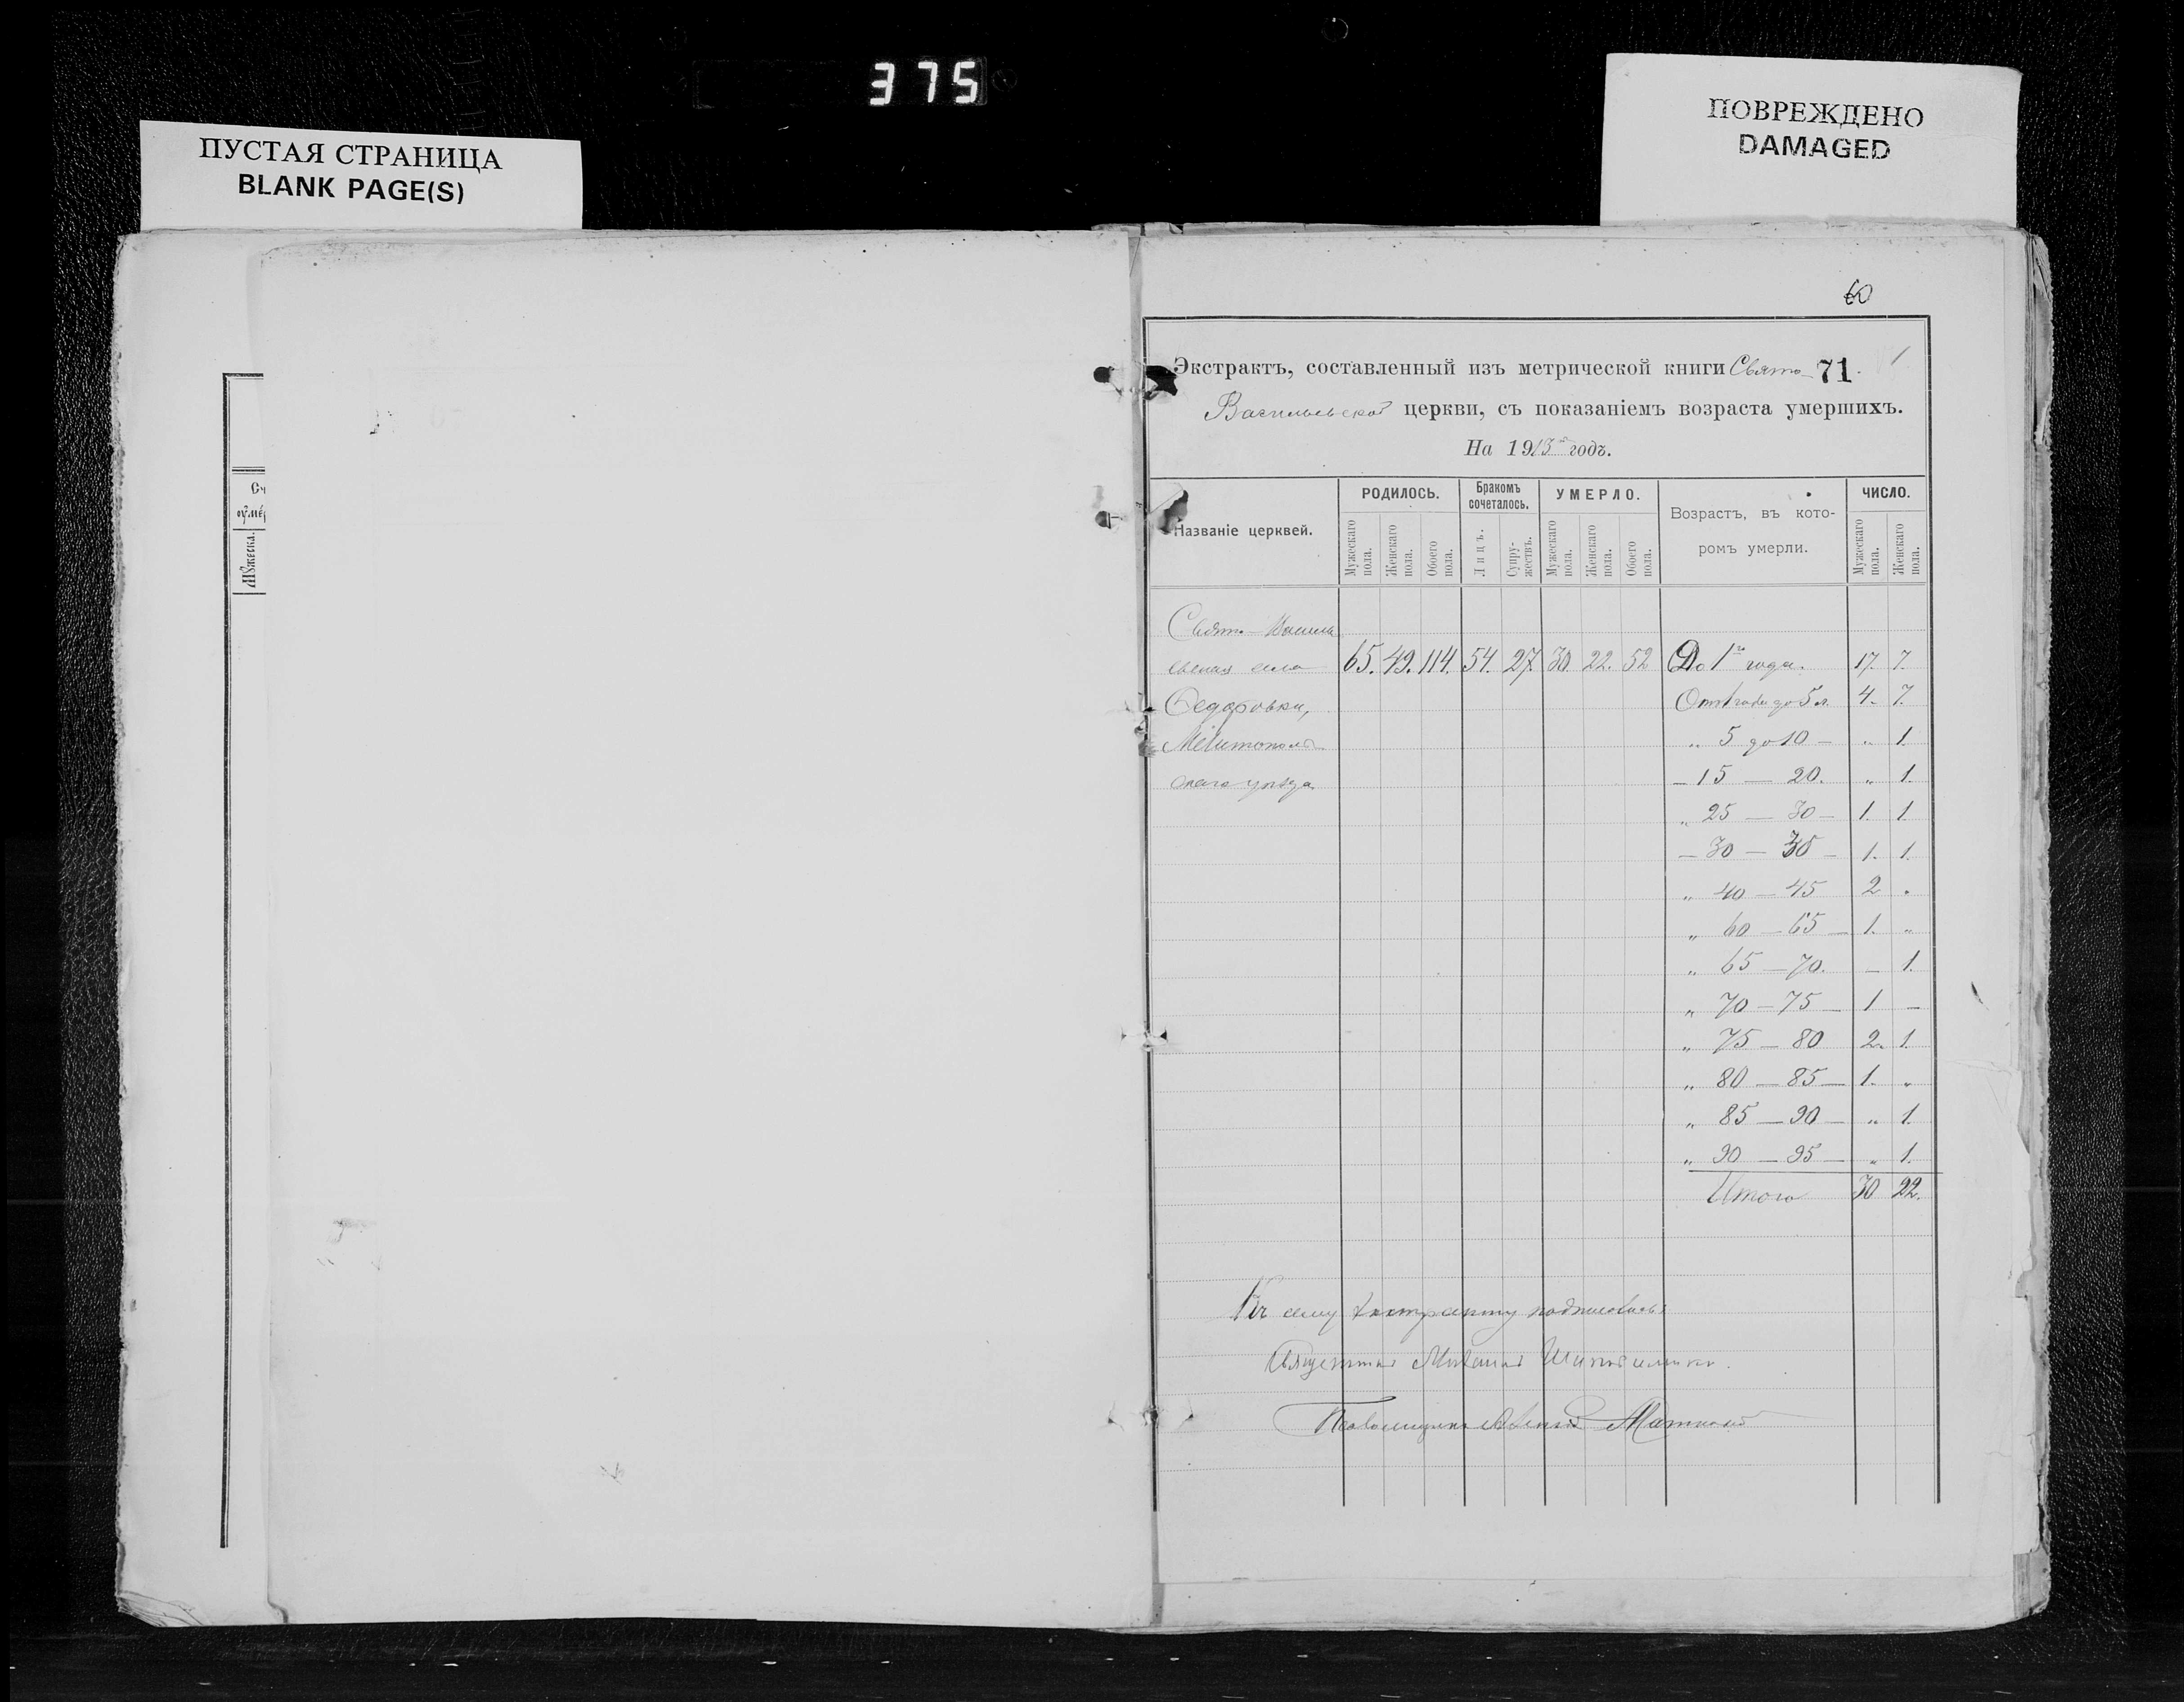 375
ПУСТАЯ СТРАНИЦА
BLANK PAGE(S)
ПОВРЕЖДЕНО
DAMAGED
Сч
оумер
Мужеска.
60
Экстрактъ, составленный изъ метрической книги Свято- 71
Васильевской церкви, съ показаніемъ возраста умершихъ.
На 1913й годъ.
Названіе церквей. РОДИЛОСЬ. Бракомъ сочеталось. УМЕРЛО. Возрастъ, въ которомъ умерли. ЧИСЛО.
Мужескаго пола. Женскаго пола. Обоего пола. Лицъ. Супружествъ. Мужескаго пола. Женскаго пола. Обоего пола. Мужескаго пола. Женскаго пола.
Свято-Василь
евская села 65. 49. 114. 54. 27. 30. 22. 52 До 1го года. 17. 7.
Федоровки, От 1 года до 5 л. 4. 7.
Мелитополь „ 5 до 10 — „ 1.
скаго уѣзда — 15 — 20. „ 1.
„ 25 — 30 — 1. 1.
— 30 — 35 — 1. 1.
„ 40 — 45 2 „
„ 60 — 65 — 1. „
„ 65 — 70. — 1.
„ 70 — 75 — 1 —
„ 75 — 80 2. 1.
„ 80 — 85 — 1. „
„ 85 — 90 — „ 1.
„ 90 — 95 — „ 1.
Итого 30 22.
Къ сему экстракту подписались:
Священникъ Михаилъ
Псаломщикъ